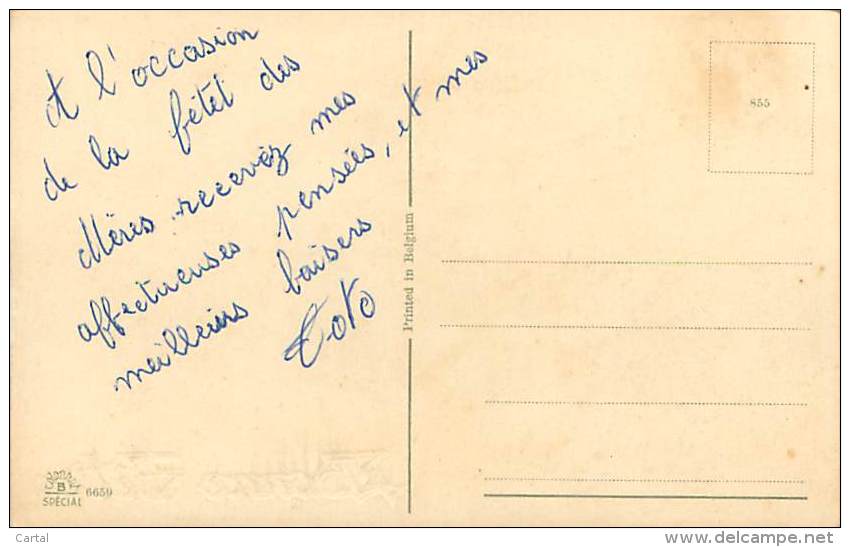 A l'occasion
de la fêtet des
Mères recevez mes
affectueuses pensées, et mes
meilleiers baisers
Toto
Printed in Belgium
855
B
SPÉCIAL
6659
Cartal
www.delcampe.net